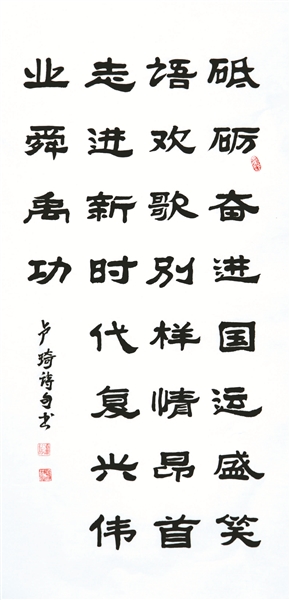 砥砺奋进国运盛笑
语欢歌别样情昂首
志进新时代复兴伟
业舜禹功
卢琦诗句书